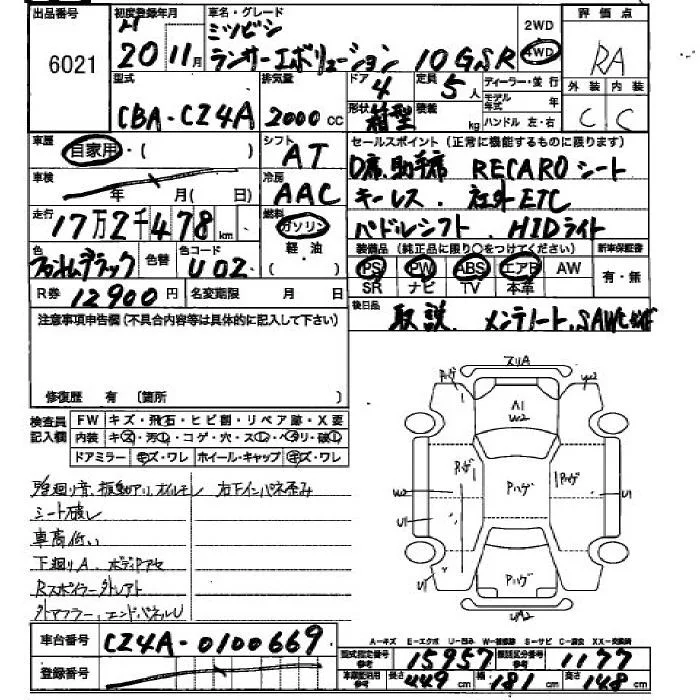 出品番号
6021
初度登録年月
H
20 11月
車名・グレード
ミツビシ
ランサーエボリューション 10 GSR
2WD
4WD
評価点
RA
外装 内装
C C
型式
CBA-CZ4A
排気量
2000 cc
ドア
4
定員
5 人
形状
箱型
積載
kg
ディーラー・並行
モデル年式 年
ハンドル 左・右
車歴
自家用・( )
シフト
AT
車検
年 月(日)
冷房
AAC
走行
17万2千478 km
燃料
ガソリン
軽・油
( )
色
ファントムブラック
色替
色コード
U02
R券
12900 円
名変期限 月 日
セールスポイント (正常に機能するものに限ります)
D席、助手席 RECAROシート
キーレス、社外ETC
パドルシフト、HIDライト
装備品 (純正品に限り○をつけてください)
新車保証書
PS PW ABS エアB AW
SR ナビ TV 本革
有・無
後日品
取説、メンテノート、
注意事項申告欄 (不具合内容等は具体的に記入して下さい)
修復歴 有 〔箇所 〕
検査員記入欄
FW キズ・飛石・ヒビ割・リペア跡・X要
内装 キズ・汚れ・コゲ・穴・スレ・ヘタリ・破れ
ドアミラー キズ・ワレ ホイール・キャップ キズ・ワレ
シート破れ
車高低い
下廻りA、ボディPアセ
Rスポイラー
外マフラー、エンドパネルU
スリA
パハゲ
W2
A1
W2
パハゲ
パハゲ
パハゲ
W2
U1
U1
U1
パハゲ
UA2
車台番号
CZ4A-0100669
登録番号
A-キズ E-エクボ U-凹み W-補修跡 S-サビ C-腐食 XX-交換済
型式指定番号
参考
15957
類別区分番号
参考
1177
参考
長さ
449 cm
幅
181 cm
高さ
148 cm